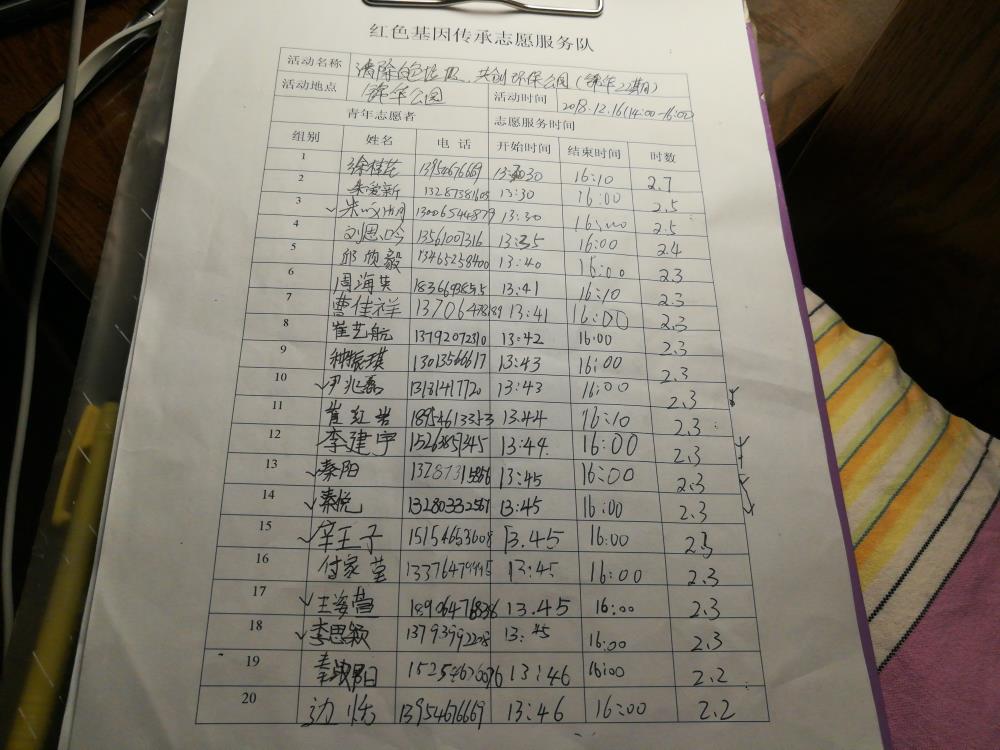 红色基因传承志愿服务队
活动名称 清除白色垃圾、共创环保公园(锦华22期)
活动地点 锦华公园 活动时间 2018.12.16(14:00-16:00)
青年志愿者 志愿服务时间
组别 姓名 电话 开始时间 结束时间 时数
1 徐桂芪 13954676669 13:30 16:10 2.7
2 朱爱新 13287381605 13:30 16:00 2.5
3 朱 13006544879 13:30 16:00 2.5
4 刘思吟 13561007316 13:35 16:00 2.4
5 邱欣毅 13465258400 13:40 16:00 2.3
6 周海英 13:41 16:10 2.3
7 曹佳祥 13:41 16:00 2.3
8 崔艺航 13792072310 13:42 16:00 2.3
9 种振琪 13:43 16:00 2.3
10 尹兆磊 13181417720 13:43 16:00 2.3
11 崔红岩 18954613353 13:44 16:10 2.3
12 李建宇 13:44 16:00 2.3
13 秦阳 13:45 16:00 2.3
14 秦悦 13:45 16:00 2.3
15 辛王子 15154653608 13.45 16:00 2.3
16 付家莹 13376479995 13:45 16:00 2.3
17 王姿萱 18906476836 13.45 16:00 2.3
18 李思颖 13793992208 13:45 16:00 2.3
19 13:46 16:00 2.2
20 边怡 13954676669 13:46 16:00 2.2